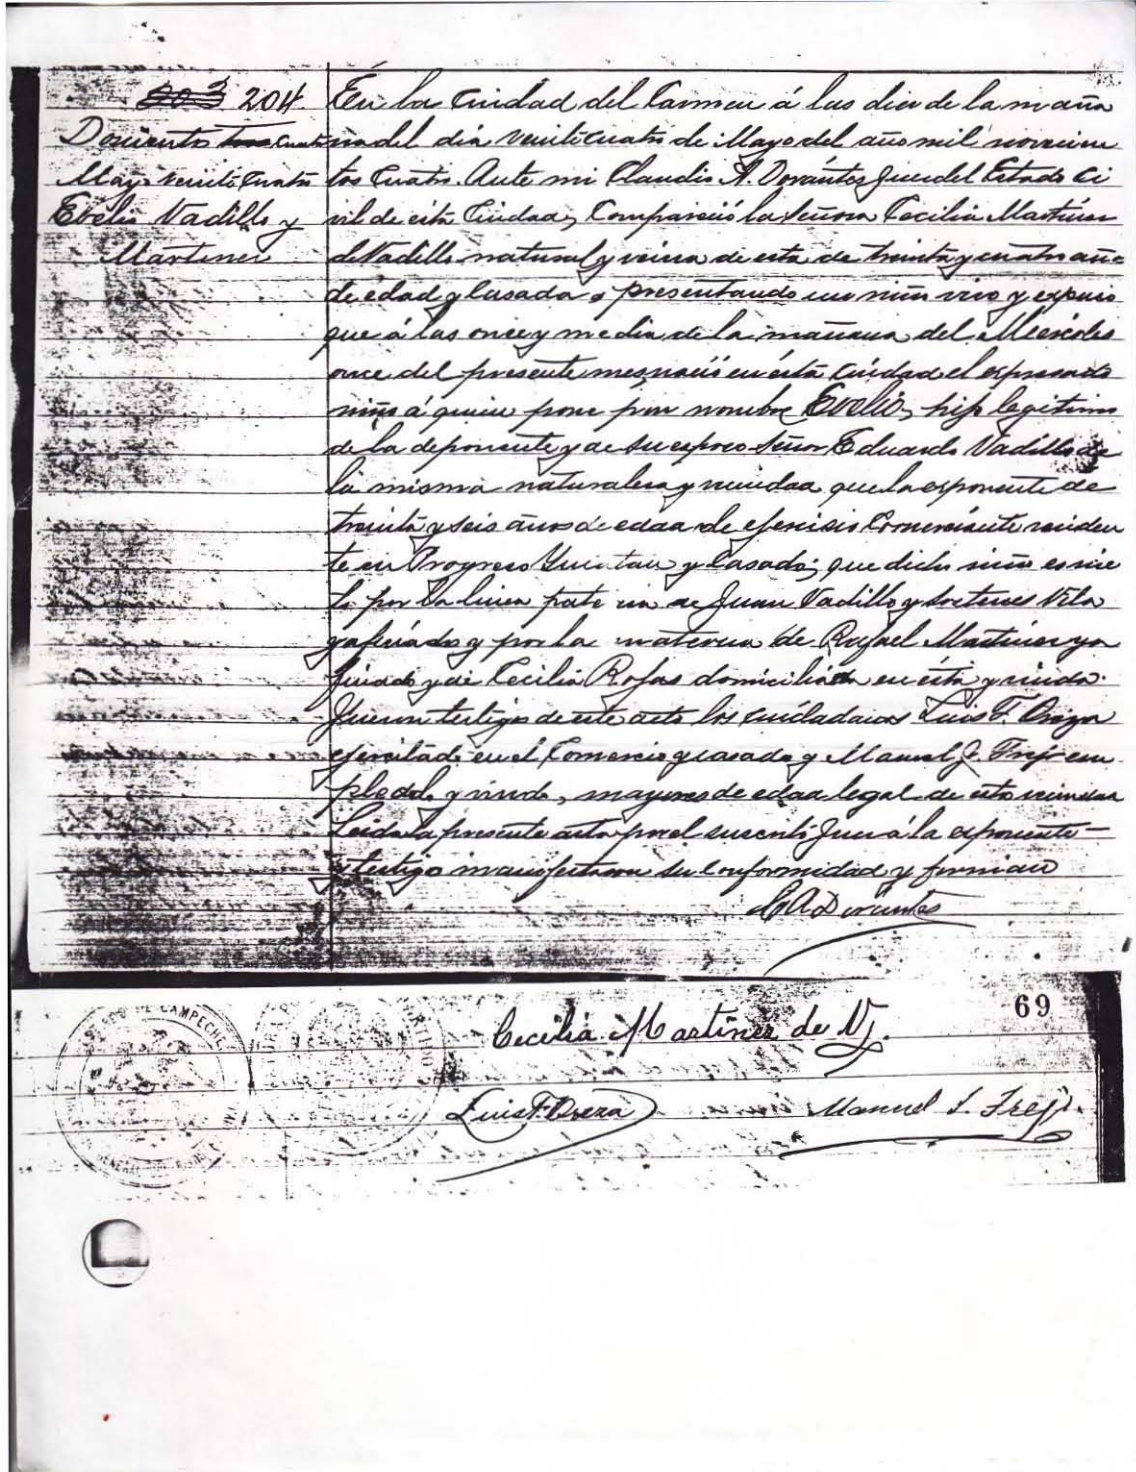 203 204.
Docientos tres cuatro
Mayo veinte cuatro
Evelio Vadillo y
Martinez
En la Ciudad del Carmen á las diez de la maña
na del dia veinte cuatro de Mayo del año mil novecien
tos cuatro. Ante mi Claudio A. Dorántes Juez del Estado Ci
vil de ésta Ciudad, Compareció la Señora Cecilia Martínez
de Vadillo natural y vecina de esta de treinta y cuatro año
de edad y Casada, presentando un niño vivo y expuso
que á las once y media de la mañana del Miércoles
once del presente mes nació en ésta Ciudad el expresado
niño á quien pone por nombre Evelio, hijo legitimo
de la deponente y de su esposo Señor Eduardo Vadillo de
la misma naturaleza y vecindad que la esponente de
treinta y seis años de edad de ejercicio Comerciante residen
te en Progreso Yucatan y Casado; que dicho niño es nie
to por la linea paterna de Juan Vadillo y Vila
ya finados y por la materna de Rafael Martinez ya
finado y de Cecilia Rojas domiciliada en ésta y viuda.
Fueron testigos de este acto los ciudadanos Luis F.
ejercitado en el Comercio y casado y Manuel J. Trejo em
pleado y viudo, mayores de edad legal de esta vecindad
Leida la presente acta por el suscrito Juez á la esponente
y testigos manifestaron su conformidad y firman
C A Dorantes
69
Cecilia Martínez de V.
Luis F.
Manuel J. Trejo.
CAMPECHE